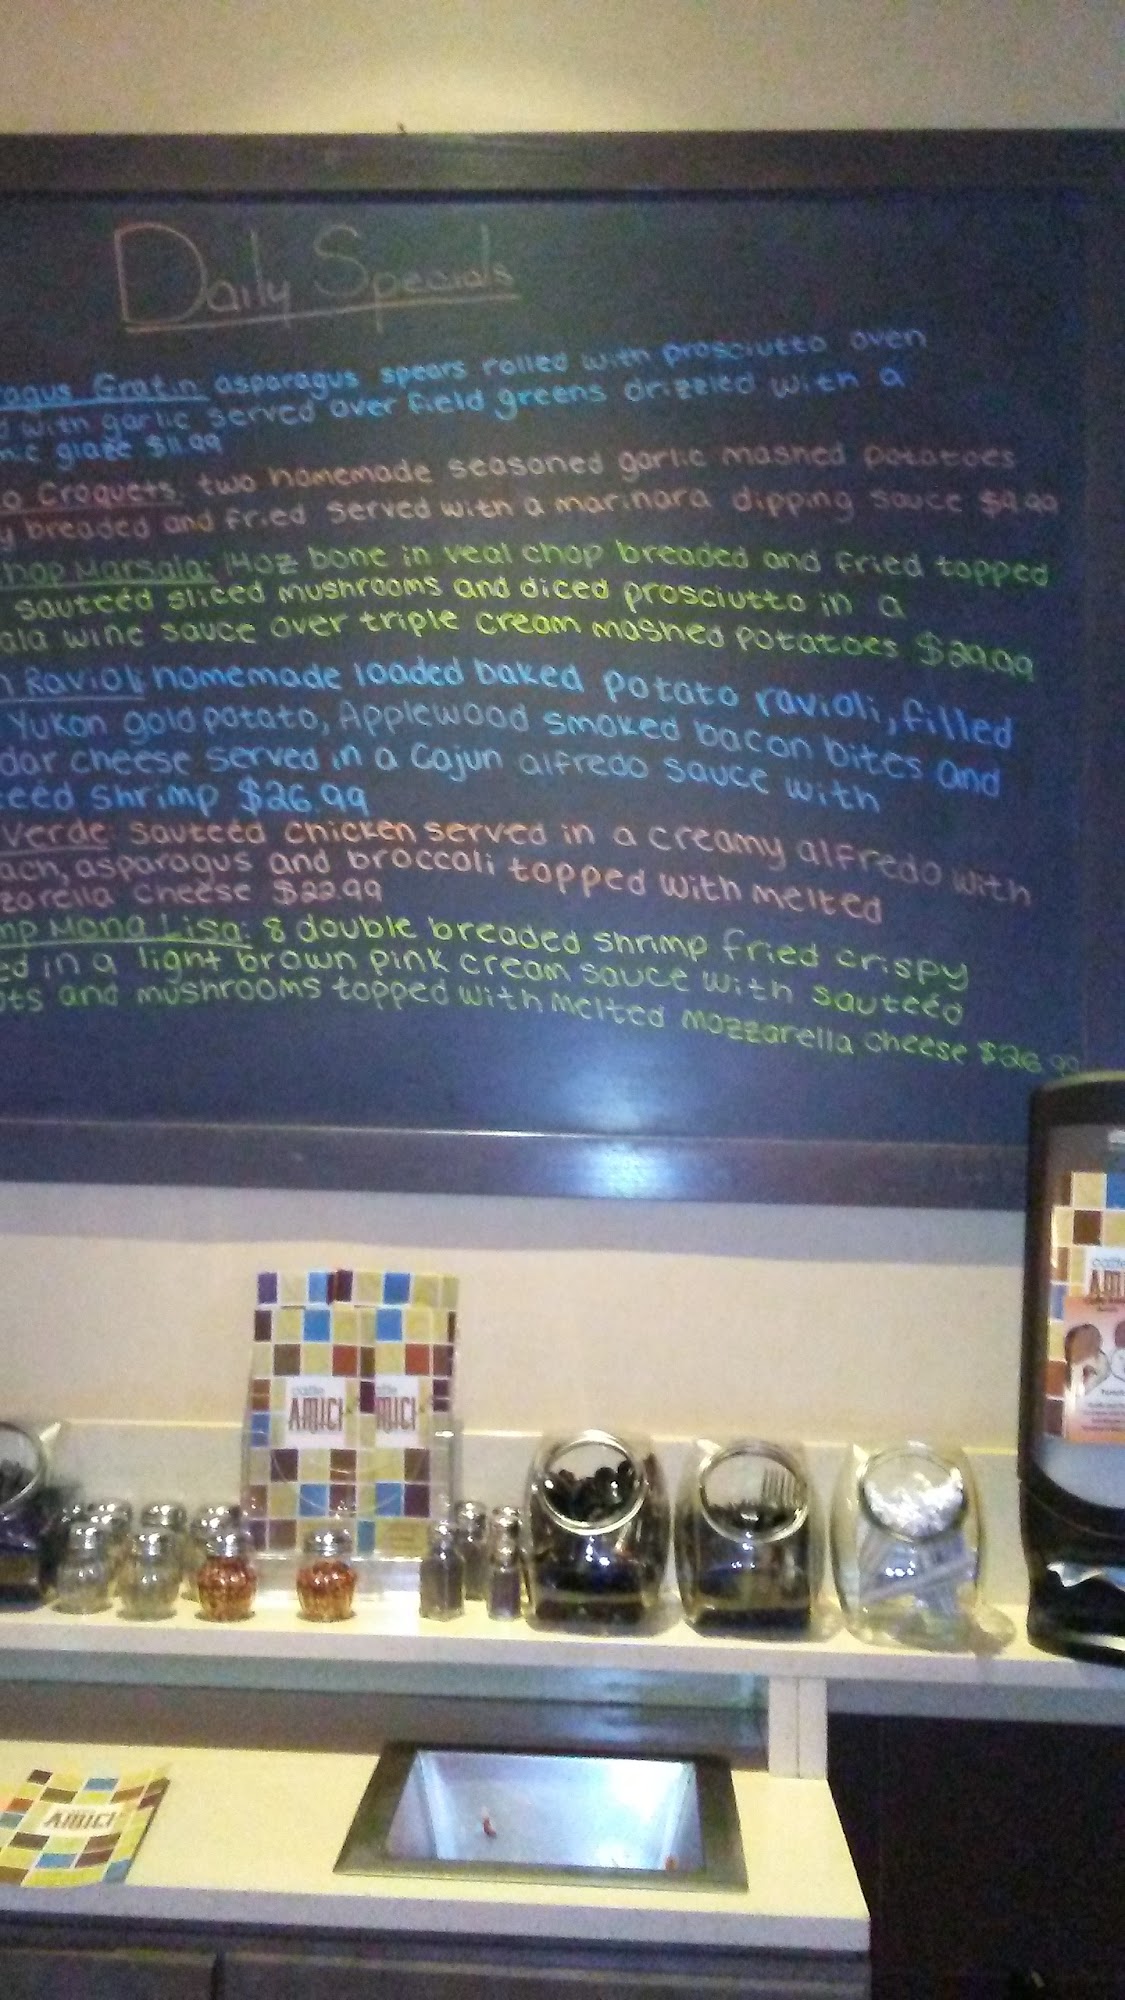 Daily Specials
ragus Gratin: asparagus spears rolled with prosciutto oven
d with garlic served over field greens drizzled with a
mic glaze $11.99
o Croquets: two homemade seasoned garlic mashed potatoes
y breaded and fried served with a marinara dipping sauce $9.99
hop Marsala: 14oz bone in veal chop breaded and fried topped
sauteéd sliced mushrooms and diced prosciutto in a
ala wine sauce over triple cream mashed potatoes $29.99
n Ravioli homemade loaded baked potato ravioli, filled
Yukon gold potato, Applewood smoked bacon bites and
dar cheese served in a Cajun alfredo sauce with
teed shrimp $26.99
Verde: sauteéd chicken served in a creamy alfredo with
ach, asparagus and broccoli topped with melted
zorella cheese $22.99
mp Mona Lisa: 8 double breaded shrimp fried crispy
ed in a light brown pink cream sauce with sauteéd
ots and mushrooms topped with melted mozzarella cheese $26.99
caffe
AMICI
affe
MICI
caffe
AMI
AMICI